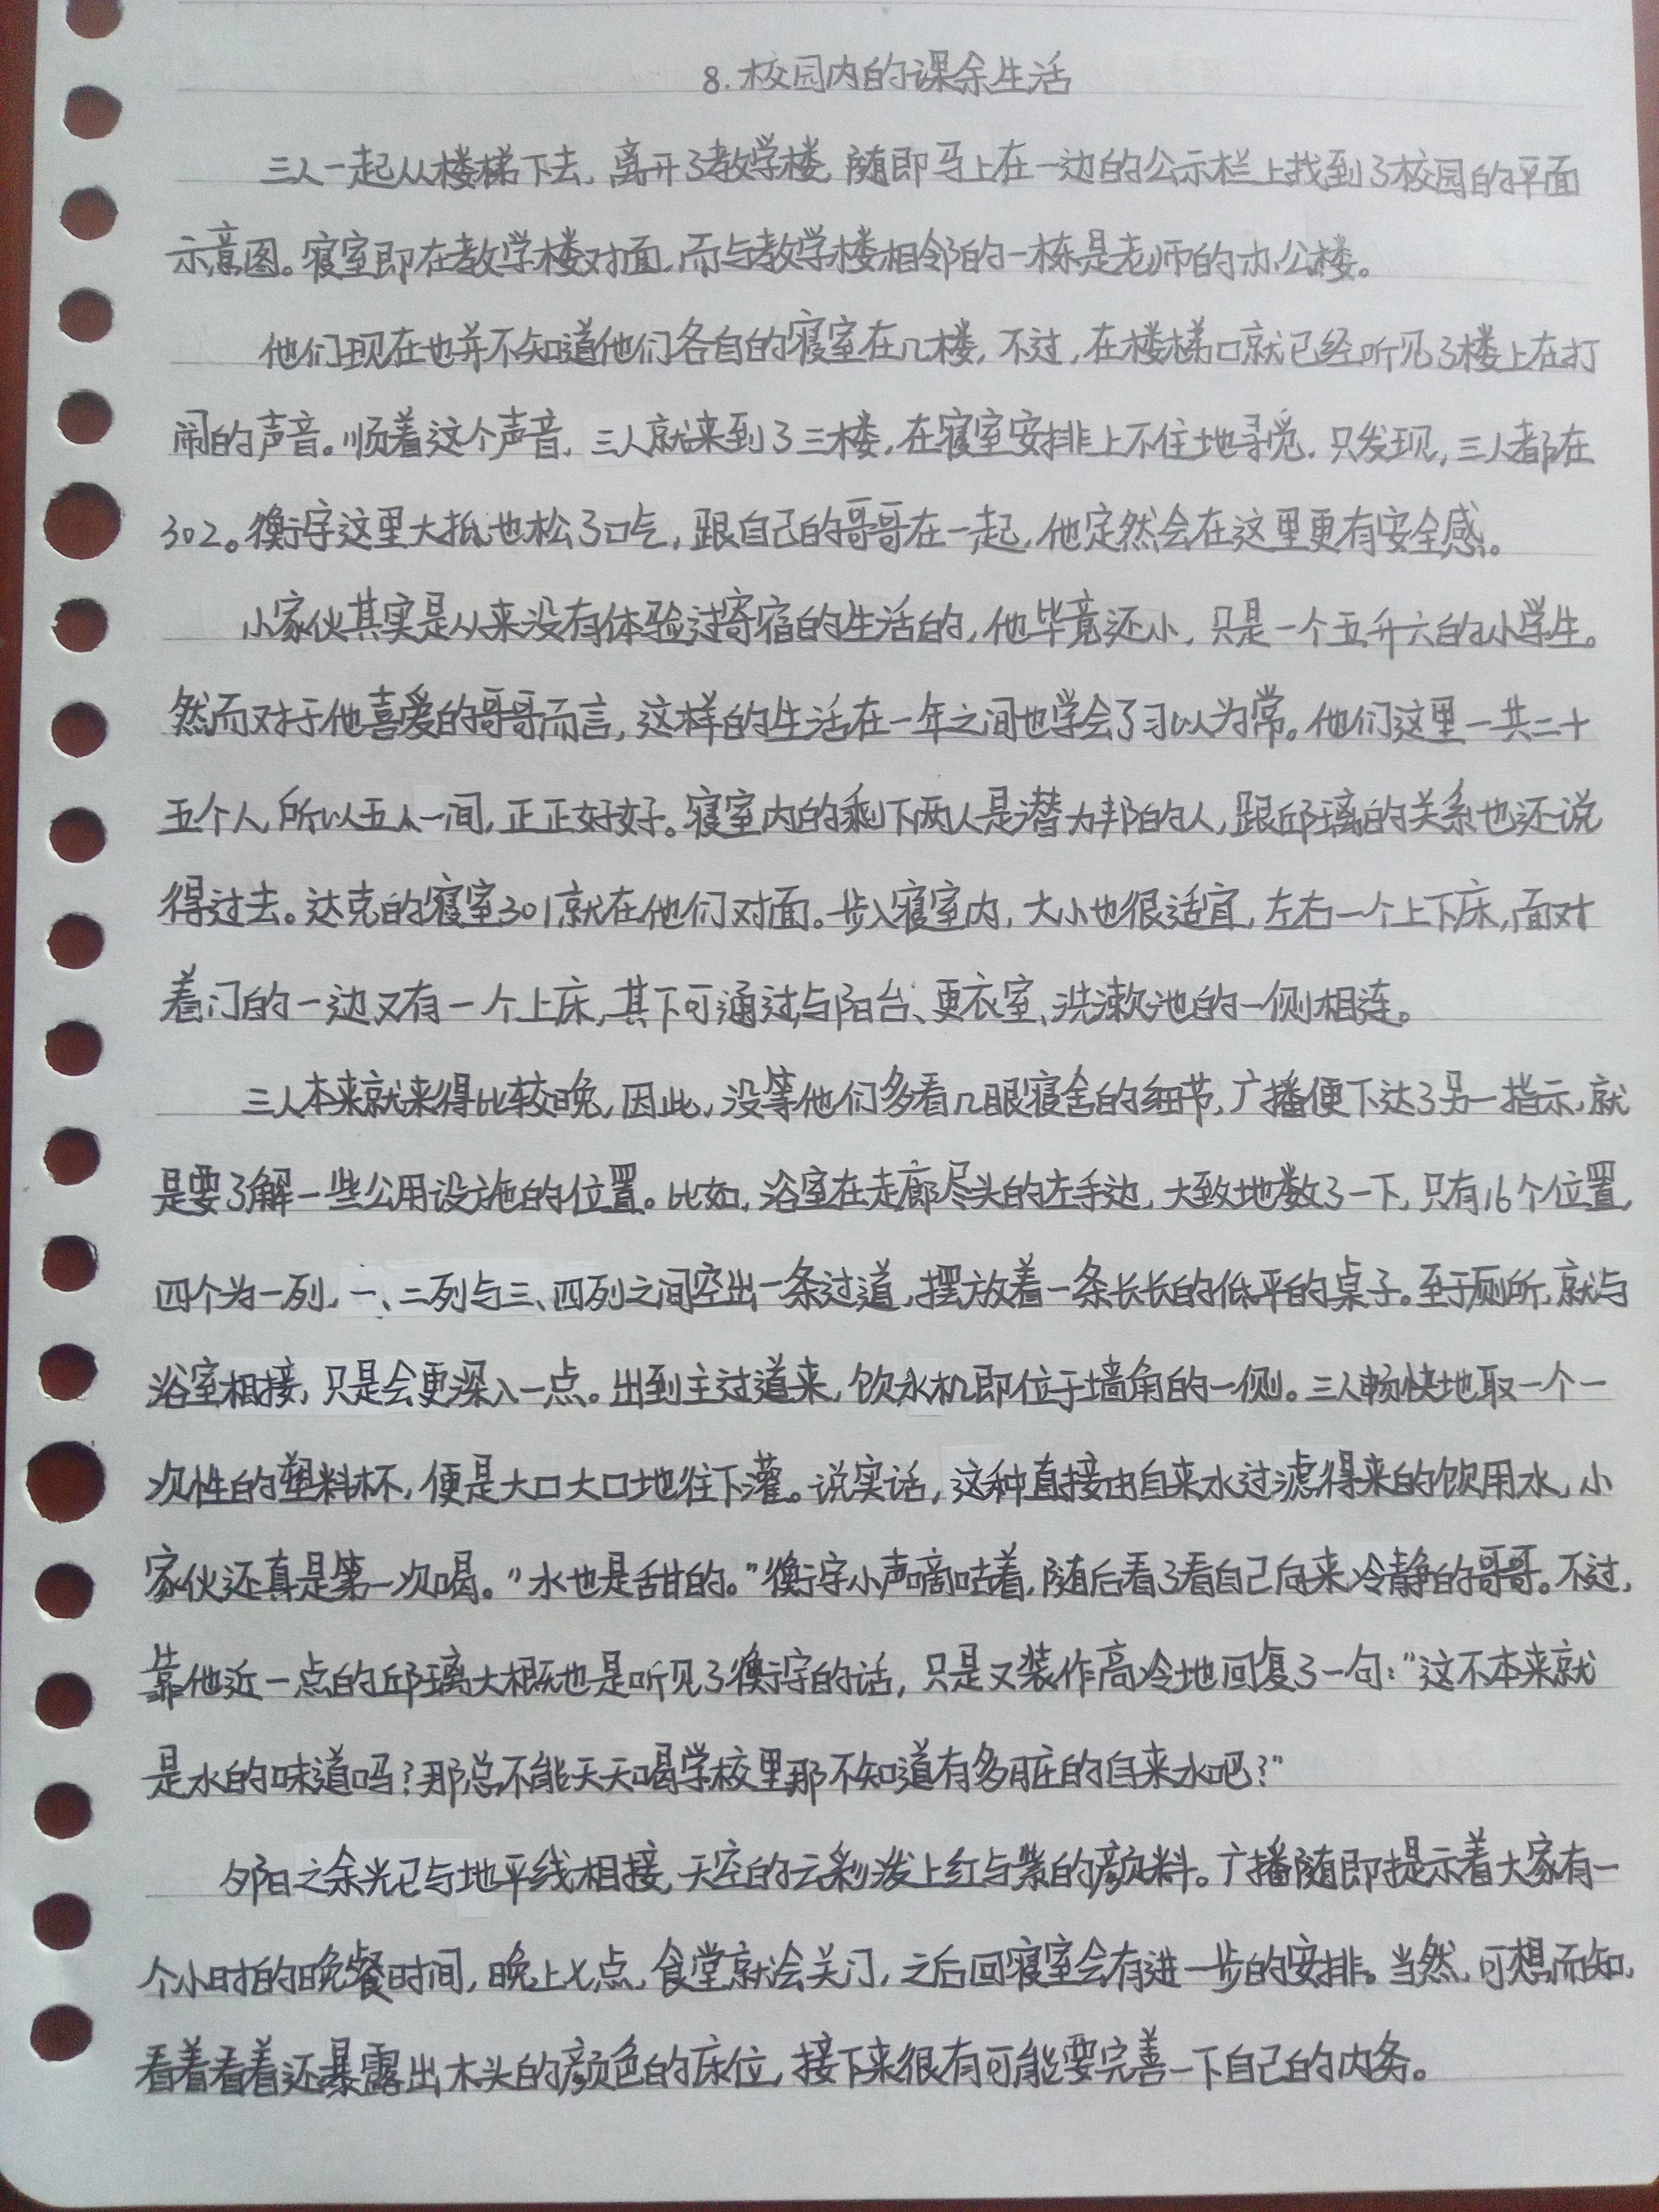 8.校园内的课余生活
三人一起从楼梯下去,离开了教学楼,随即马上在一边的公示栏上找到了校园的平面
示意图。寝室即在教学楼对面,而与教学楼相邻的一栋是老师的办公楼。
他们现在也并不知道他们各自的寝室在几楼,不过,在楼梯口就已经听见了楼上在打
闹的声音。顺着这个声音,三人就来到了三楼,在寝室安排上不住地寻觅.只发现,三人都在
302。衡宇这里大抵也松了口气,跟自己的哥哥在一起,他定然会在这里更有安全感。
小家伙其实是从来没有体验过寄宿的生活的,他毕竟还小,只是一个五升六的小学生。
然而对于他喜爱的哥哥而言,这样的生活在一年之间也学会了习以为常。他们这里一共二十
五个人,所以五人一间,正正好好。寝室内的剩下两人是潜力邦的人,跟邱璃的关系也还说
得过去。达克的寝室301就在他们对面。步入寝室内,大小也很适宜,左右一个上下床,面对
着门的一边又有一个上床,其下可通过与阳台、更衣室、洗漱池的一侧相连。
三人本来就来得比较晚,因此,没等他们多看几眼寝舍的细节,广播便下达了另一指示,就
是要了解一些公用设施的位置。比如,浴室在走廊尽头的左手边,大致地数了一下,只有16个位置,
四个为一列,一、二列与三、四列之间空出一条过道,摆放着一条长长的低平的桌子。至于厕所,就与
浴室相接,只是会更深入一点。出到主过道来,饮水机即位于墙角的一侧。三人畅快地取一个一
次性的塑料杯,便是大口大口地往下灌。说实话,这种直接由自来水过滤得来的饮用水,小
家伙还真是第一次喝。"水也是甜的。"衡宇小声嘀咕着,随后看了看自己向来冷静的哥哥。不过,
靠他近一点的邱璃大概也是听见了衡宇的话,只是又装作高冷地回复了一句:"这不本来就
是水的味道吗?那总不能天天喝学校里那不知道有多脏的自来水吧?"
夕阳之余光已与地平线相接,天空的云彩泼上红与紫的颜料。广播随即提示着大家有一
个小时的晚餐时间,晚上七点,食堂就会关门,之后回寝室会有进一步的安排。当然,可想而知,
看着看着还暴露出木头的颜色的床位,接下来很有可能要完善一下自己的内务。